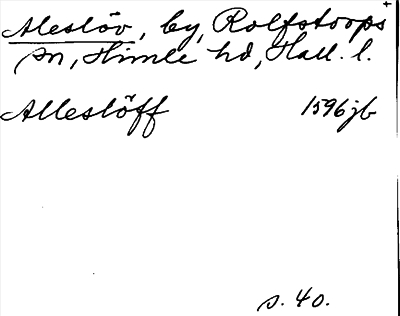 Aleslöv, by, Rolfstorps
sn, Himle hd, Hall. l.
Alleslöff 1596 jb
s. 40.